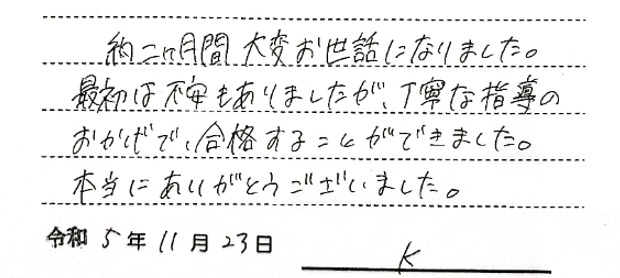 約二ヶ月間大変お世話になりました。
最初は不安もありましたが、丁寧な指導の
おかげで、合格することができました。
本当にありがとうございました。
令和5年11月23日
K